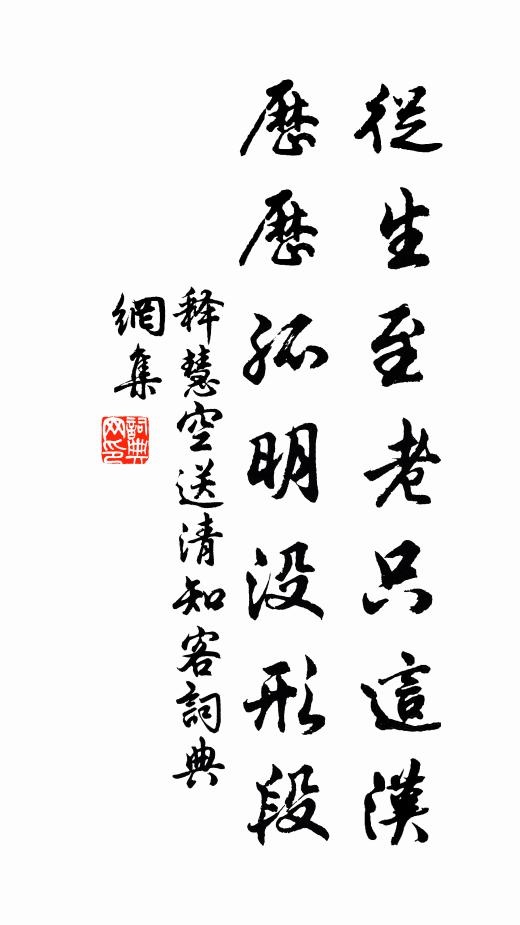 從生至老只這漢
歷歷孤明没形段
释慧空送清知客詞典
網集
詞典
网印